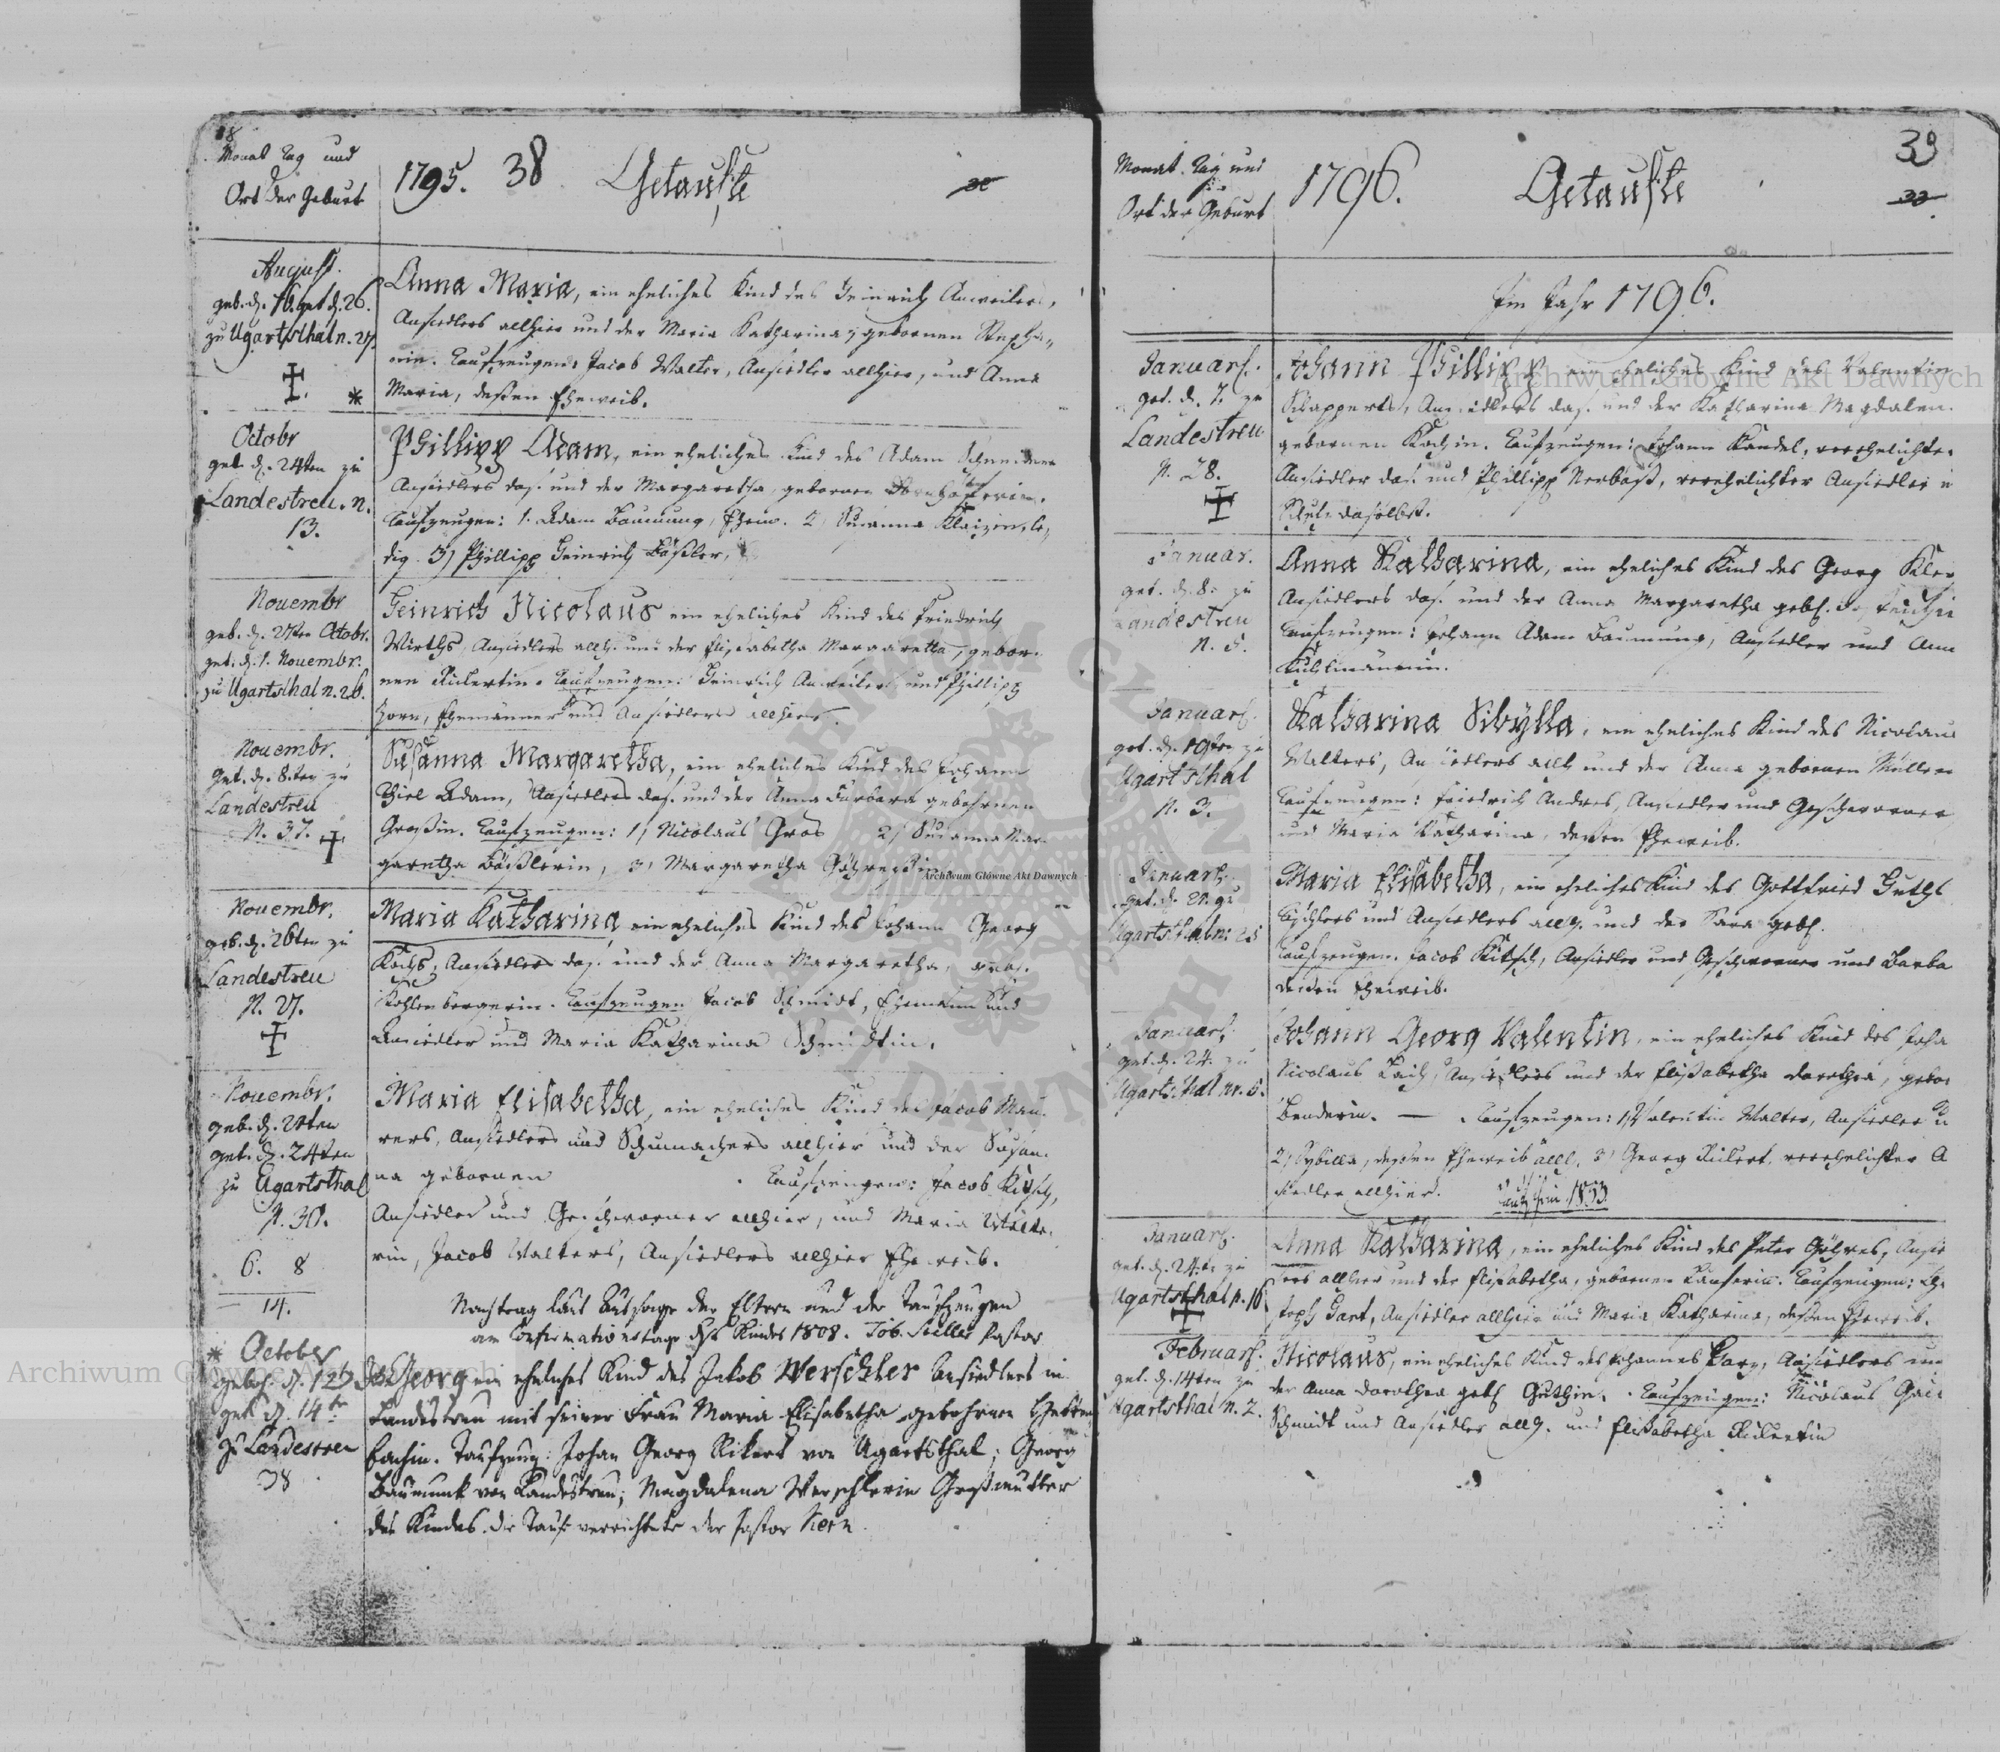 38
Monat Tag und
Ort der Geburt
1795. 38 Getaufte
August.
geb. d. 16. get d. 26.
zu Ugartsthal n. 27.
Anna Maria, ein eheliches Kind des Heinrich Anweilers,
Ansiedlers allhier und der Maria Katharina, gebornen Stepha-
nin. Taufzeugen: Jacob Walter, Ansiedler allhier, und Anna
Maria, deßen Eheweib.
Octobr
get. d. 24ten zu
Landestreu. n.
13.
Phillipp Adam, ein eheliches Kind des Adam Schneider
Ansiedlers das. und der Margaretha, gebornen
Taufzeugen: 1. Adam Baumung, Ehem. 2, Susanna Klaizin, le-
dig. 3) Phillipp Heinrich Bäßler,
Novembr
geb. d. 27ten Octobr.
get. d. 1. Novembr.
zu Ugartsthal n. 26.
Heinrich Nicolaus ein eheliches Kind des Friedrich
Wirths, Ansiedlers allh. und der Elisabetha Margaretha, gebor-
nen Rickertin. Taufzeugen: Heinrich Anweiler, und Phillipp
Horn, Ehemänner und Ansiedlern allhier.
Novembr.
get. d. 8.ten zu
Landestreu
N. 37.
Susanna Margaretha, ein eheliches Kind des Johann
Thiel Adam, Ansiedlers das. und der Anna Barbara gebohrnen
Großin. Taufzeugen: 1) Nicolaus Gros 2) Susanna Mar-
garetha Bäßlerin, 3) Margaretha
Novembr.
geb. d. 26ten zu
Landestreu
N. 27.
Maria Katharina ein eheliches Kind des Johann Georg
Kochs, Ansiedlers das. und der Anna Margaretha, geb.
Kohlenbergerin. Taufzeugen Jacob Schmidt, Ehemann und
Ansiedler und Maria Katharina Schmidtin.
Novembr.
geb. d. 22ten
get. d. 24ten
zu Ugartsthal
N. 30.
Maria Elisabetha, ein eheliches Kind des Jacob Mau-
rers, Ansiedlers und Schumachers allhier und der Susan-
na gebornen Taufzeugen: Jacob Kitsch,
Ansiedler und Geschworner allhier, und Maria
rin, Jacob Walters, Ansiedlers allhier Eheweib.
6. 8
14.
Nachtrag laut Aussage der Eltern und der Taufzeugen
am Confirmationstage des Kindes 1808. Job. Stiller Pastor
* October
geboh. d. 12
get d. 14te
zu Landestreu
38
Joh Georg ein eheliches Kind des Jakob Werschler Ansiedlers in
Landestreu mit seiner Frau Maria Elisabetha gebohrnen
bachin. Taufzeug: Johan Georg Rikert von Ugartsthal; Georg
Baumunk von Landestreu; Magdalena Werschlerin Großmutter
des Kindes. Die Taufe verrichtete der Pastor Kern
39
Monat Tag und
Ort der Geburt
1796. Getaufte
Im Jahr 1796.
Januar.
get. d. 7. zu
Landestreu
N. 28.
Johann Phillipp ein eheliches Kind des Valentin
Schapperts, Ansiedlers das. und der Katharina Magdalen.
gebornen Kochin. Taufzeugen: Johann Kandel, verehelichter
Ansiedler das. und Phillipp Neubaß, verehelichter Ansiedler u
Schulz daselbst.
Januar.
get. d. 8. zu
Landestreu
N. 5.
Anna Katharina, ein eheliches Kind des Georg Klei
Ansiedlers das. und der Anna Margaretha geb.
Taufzeugen: Johann Adam Baumung, Ansiedler und Ann
Kuhlmännin.
Januar.
get. d. 19ten zu
Ugartsthal
N. 3.
Katharina Sibylla, ein eheliches Kind des Nicolaus
Walters, Ansiedlers allh und der Anna gebornen Müller
Taufzeugen: Friedrich Andres, Ansiedler und Geschworner
und Maria Katharina, dessen Eheweib.
Januar.
get. d. 21. zu
Ugartsthal n. 25
Maria Elisabetha, ein eheliches Kind des Gottfried Guths
Tischlers und Ansiedlers allh. und der Sara geb.
Taufzeugen. Jacob Kitsch, Ansiedler und Geschworner und Barba
deßen Eheweib.
Januar.
get. d. 24. zu
Ugartsthal nr. 5.
Johann Georg Valentin, ein eheliches Kind des Joha
Nicolaus Ansiedlers und der Elisabetha Dorothea, gebor
Benderin. — Taufzeugen: 1) Valentin Walter, Ansiedler u
2) Sybilla, deßen Eheweib allh. 3) Georg Rickert, verehelichter A
siedler allhier. 1833
Januar.
get. d. 24. zu
Ugartsthal n. 16
Anna Katharina, ein eheliches Kind des Peter Ansie
lers allhier und der Elisabetha, gebornen Taufzeugen: Ch.
stoph Hart, Ansiedler allhier und Maria Katharina, deßen Eheweib.
Februar.
get. d. 14ten zu
Ugartsthal n. 2.
Nicolaus, ein eheliches Kind des Johannes Ansiedlers und
der Anna Dorothea geb Guthin. Taufzeugen: Nicolaus
Schmidt und Ansiedler allh. und Elisabetha Rickertin
Archiwum Główne Akt Dawnych
Archiwum Główne Akt Dawnych
Archiwum Główne Akt Dawnych
ARCHIWUM GŁÓWNE AKT DAWNYCH